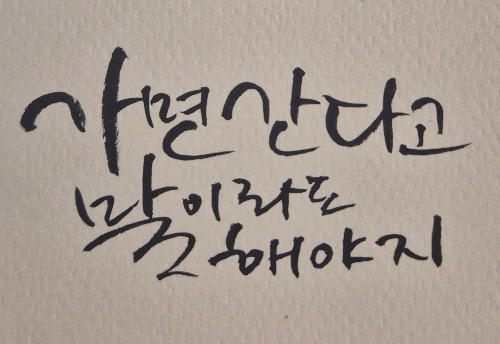 가면 간다고
말이라도
해야지